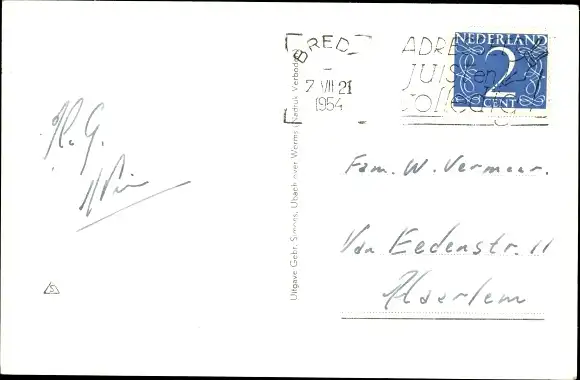 BREDA
7 VII 21
1954
ADRE
JUIST en
volledig
NEDERLAND
2
CENT
H. G.
Uitgave Gebr. Simons, Ubach over Worms Nadruk Verboden
Fam. W. Vermeer.
Van Eedenstr. 11
Haarlem
S